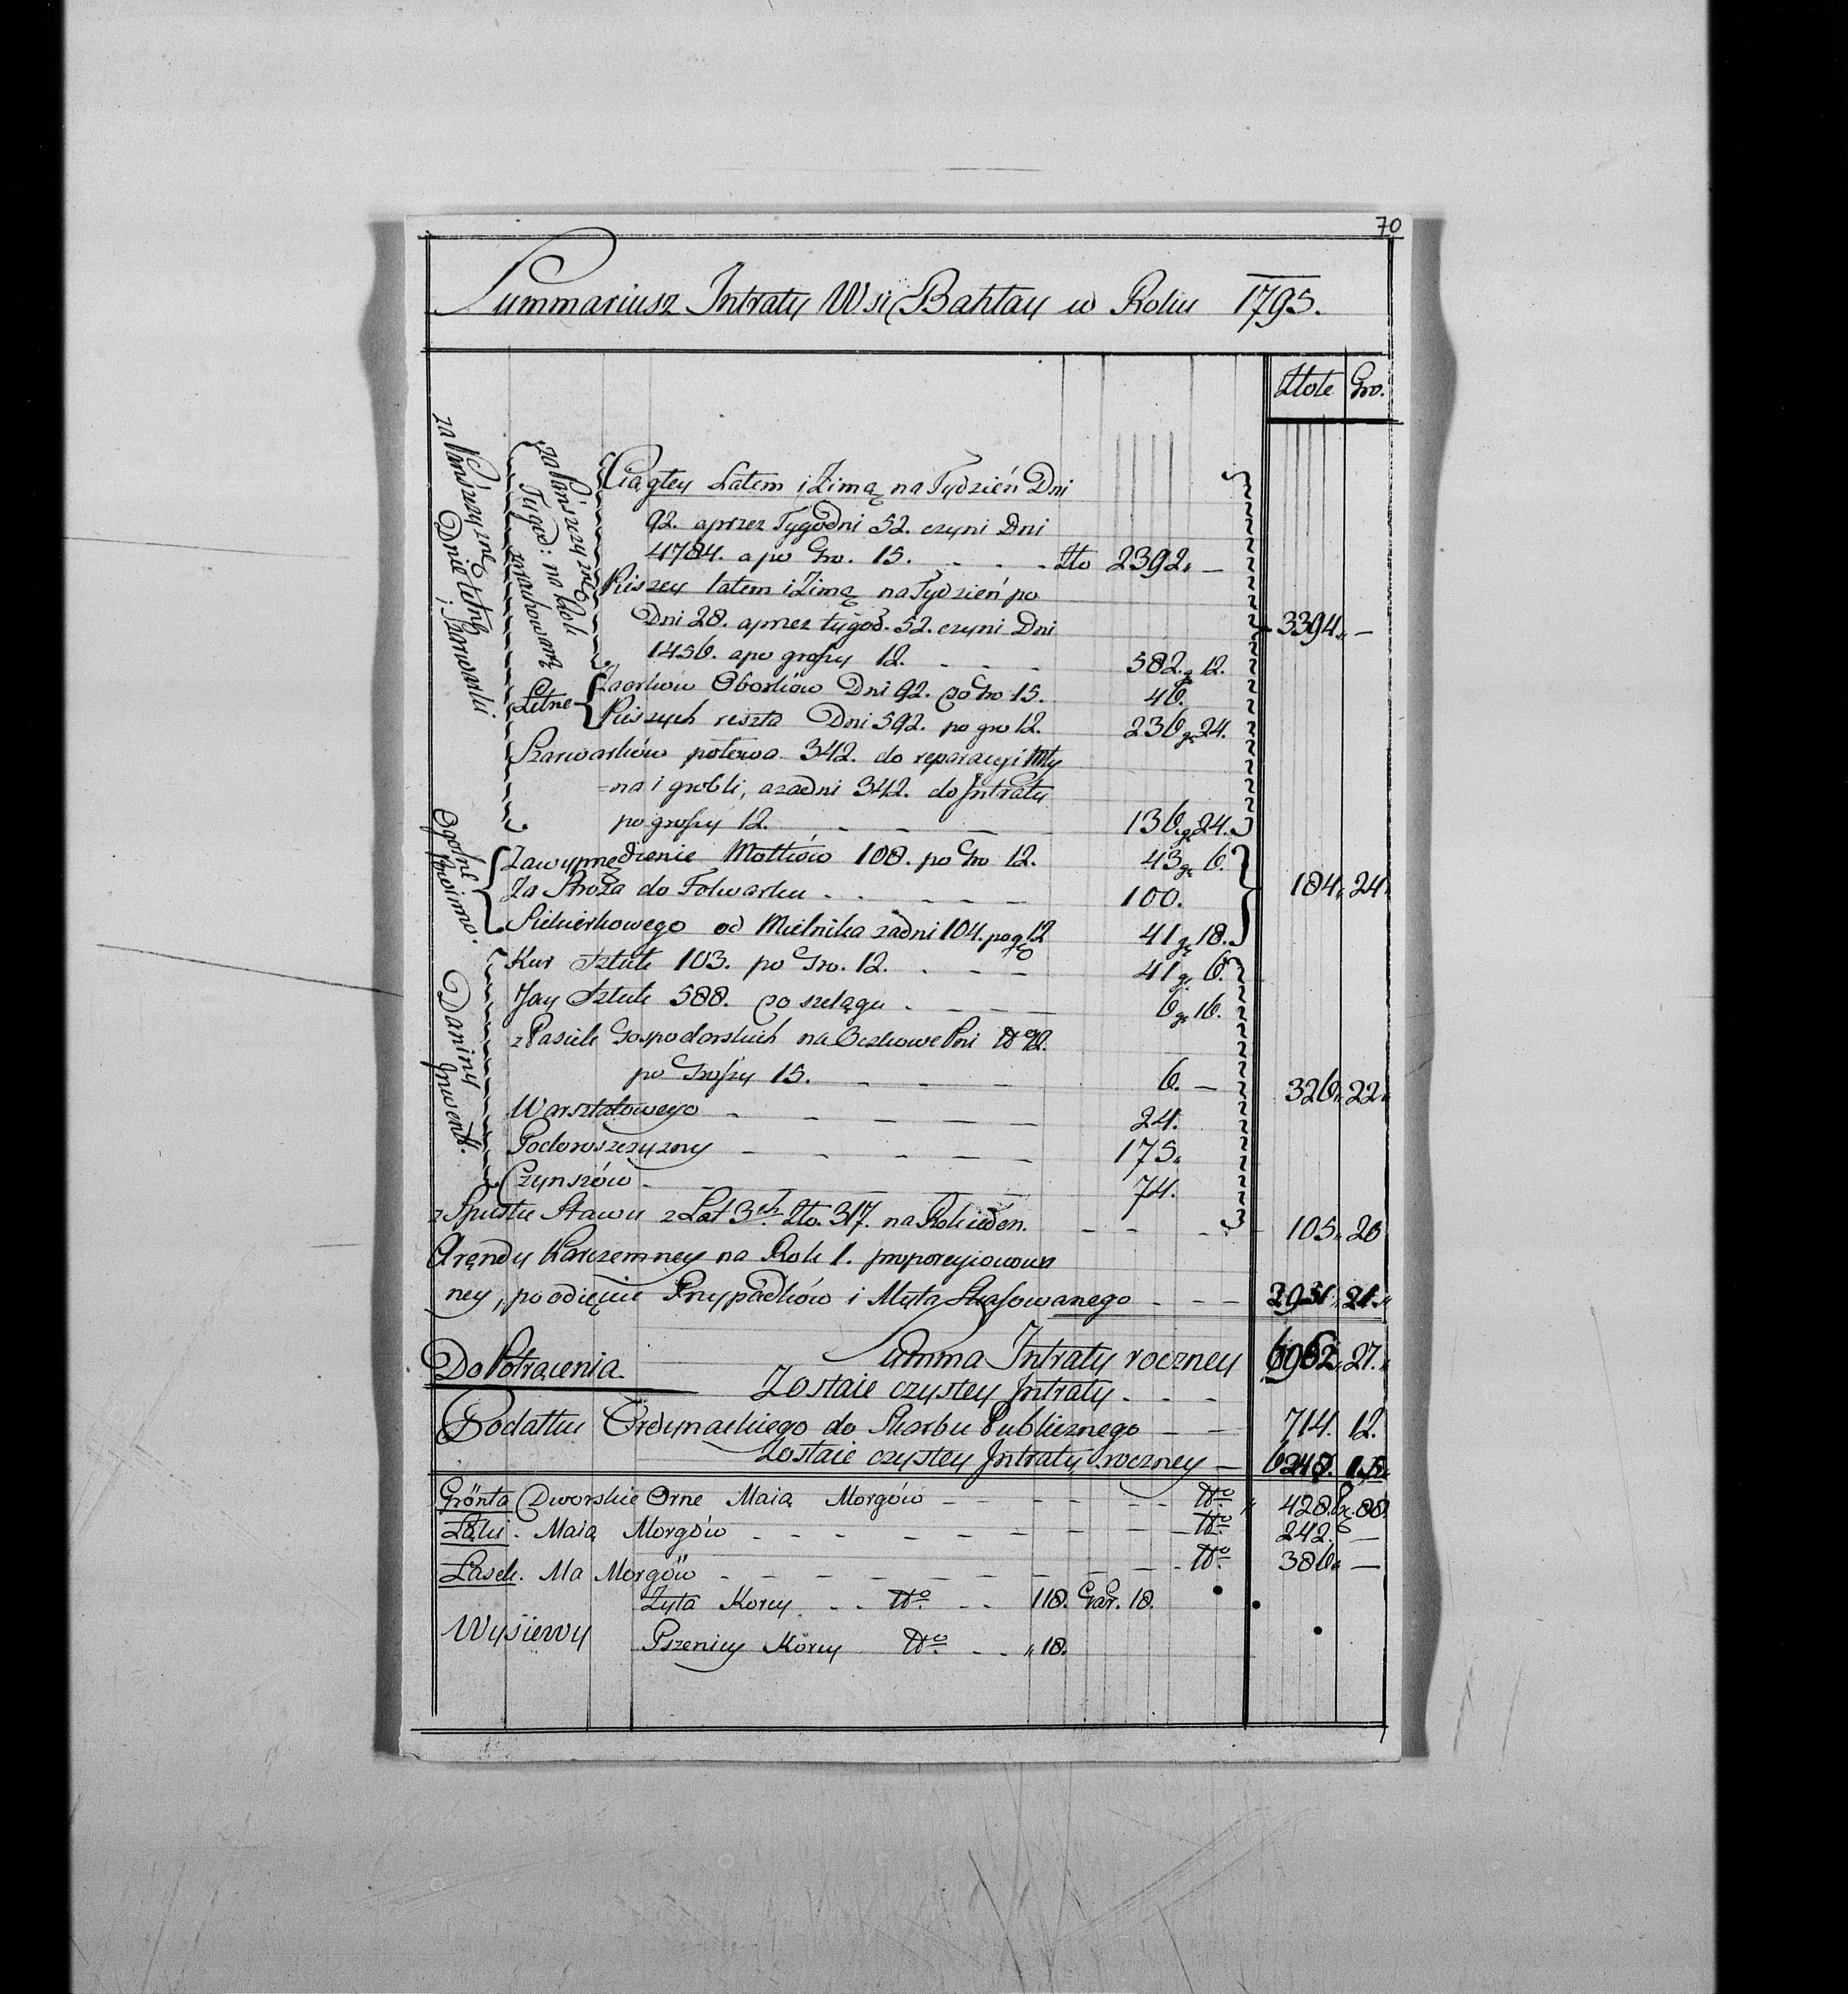 70
Summariusz Intraty Wsi Bahtay w Roku 1795.
Złote Gro.
za Pańszczyznę Dnie letnie i Szarwarki
za Pańszczyznę Tygod: na Rok zrachowaną
Ciągłey Latem i Zimą na Tydzień Dni
92. a przez Tygodni 52. czyni Dni
4784. a po Gro. 15. - - - Zło 2392. —
Pieszey latem i Zimą na Tydzień po
Dni 28. a przez tygod. 52. czyni Dni 3394. —
1456. a po groszy 12. - - - 582. gr 12.
Letne Zaorków Oborków Dni 92. po Gro 15. 46.
Pieszych reszta Dni 592. po gro 12. 236 gr 24.
Szarwarków połowa 342. do reparacyi Mły
=na i grobli, a za dni 342. do Intraty
po groszy 12. - - - 136. gr 24.
Ogólne Powinno.
Za wyprzędzenie Motków 108. po Gro 12. 43 gr 6.
Za Stroża do Folwarku - - - 100. 184. 24.
Siekierkowego od Mielnika za dni 104. po g 12 41 gr 18.
Daniny Inwent.
Kur Sztuk 103. po Gro. 12. - - - 41 gr 6.
Jay Sztuk 588. po szelągu - - - 6 gr 16.
z Pasiek Gospodarskich na Oczkowe Pni No 12.
po Groszy 15. - - - 6. — 326. 22.
Warsztatowego - - - 24.
Podoroszczyzny - - - 175.
Czynszów - - - 74.
z Spustu Stawu z Lat 3ch Zło. 317. na Rok - - - 105. 20
Arendy Karczemney na Rok 1. proporcyionowa
ney, po odięciu Przypadków i Myta Skasowanego - - - 2951. 21.
Summa Intraty roczney 6962. 27.
Do Potrącenia.
Zostaie czystey Intraty - - -
Podatku Ordynackiego do Skarbu Publicznego - - 714. 12.
Zostaie czystey Intraty roczney — 6248. 15.
Grónta Dworskie Orne Maią Morgów - - - No 428. 88.
Łąki. Maią Morgów - - - No 242. —
Lasek. Ma Morgów - - - No. 386. —
Wysiewy
Zyta Korcy - - No. - - 118. Gar. 18.
Pszenicy Korcy No - - 18.